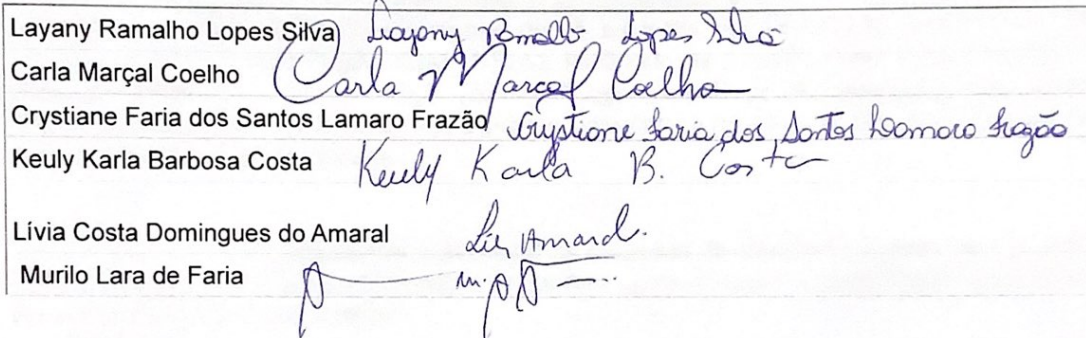 Layany Ramalho Lopes Silva Layany Ramalho Lopes Silva
Carla Marçal Coelho Carla Marçal Coelho
Crystiane Faria dos Santos Lamaro Frazão Crystiane Faria dos Santos Lamaro Frazão
Keuly Karla Barbosa Costa Keuly Karla B. Costa
Lívia Costa Domingues do Amaral Amaral.
Murilo Lara de Faria